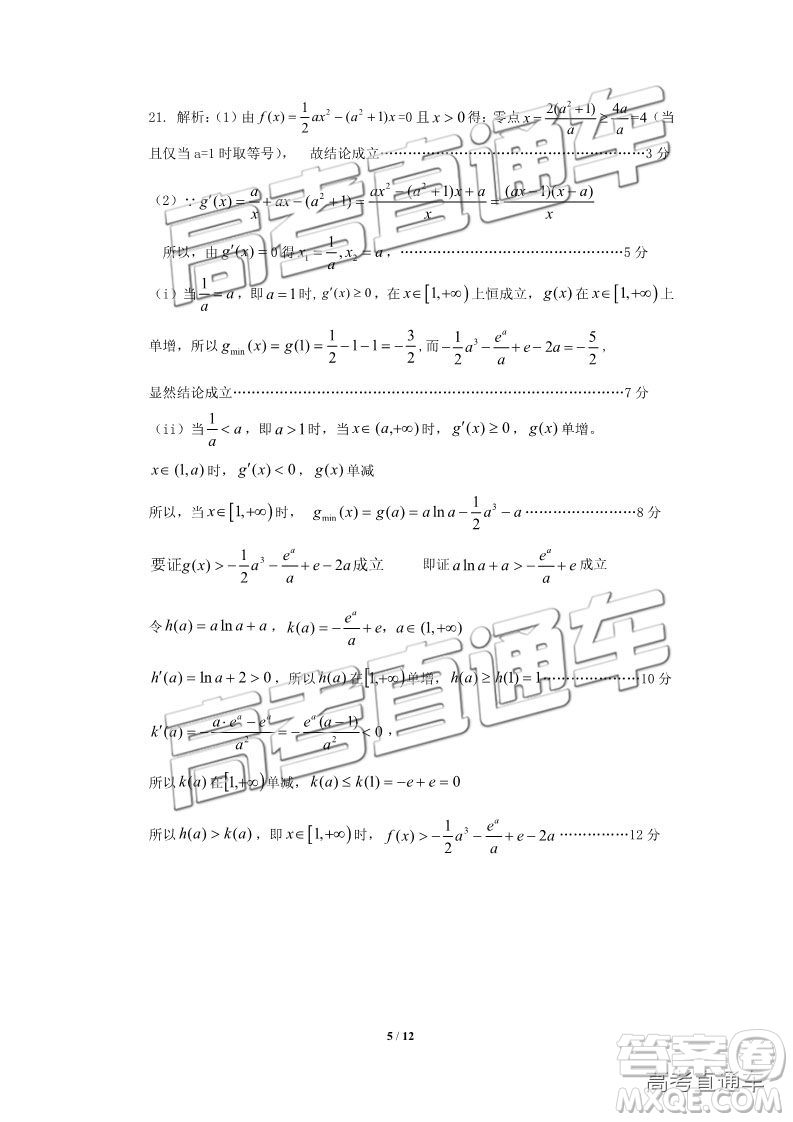 21. 解析:(1)由 f(x)=1/2 ax²-(a²+1)x=0且x>0得:零点x=2(a²+1)/a≥4a/a=4(当
且仅当a=1时取等号), 故结论成立……………………………………………………3分
(2)∵g′(x)=a/x+ax-(a²+1)=(ax²-(a²+1)x+a)/x=(ax-1)(x-a)/x
所以,由g′(x)=0得x₁=1/a,x₂=a,…………………………………………5分
(i)当1/a=a,即a=1时,g′(x)≥0,在x∈[1,+∞)上恒成立,g(x)在x∈[1,+∞)上
单增,所以g_min(x)=g(1)=1/2-1-1=-3/2,而-1/2 a³-e^a/a+e-2a=-5/2,
显然结论成立…………………………………………………………………………7分
(ii)当1/a<a,即a>1时,当x∈(a,+∞)时,g′(x)≥0,g(x)单增。
x∈(1,a)时,g′(x)<0,g(x)单减
所以,当x∈[1,+∞)时, g_min(x)=g(a)=a ln a-1/2 a³-a……………………8分
要证g(x)>-1/2 a³-e^a/a+e-2a成立 即证a ln a+a>-e^a/a+e成立
令h(a)=a ln a+a,k(a)=-e^a/a+e,a∈(1,+∞)
h′(a)=ln a+2>0,所以h(a)在[1,+∞)单增,h(a)≥h(1)=1…………………10分
k′(a)=-(a·e^a-e^a)/a²=-e^a(a-1)/a²<0,
所以k(a)在[1,+∞)单减,k(a)≤k(1)=-e+e=0
所以h(a)>k(a),即x∈[1,+∞)时,f(x)>-1/2 a³-e^a/a+e-2a……………12分
高考直通车
高考直通车
5 / 12
答案圈
高考直通车
MXQE.COM